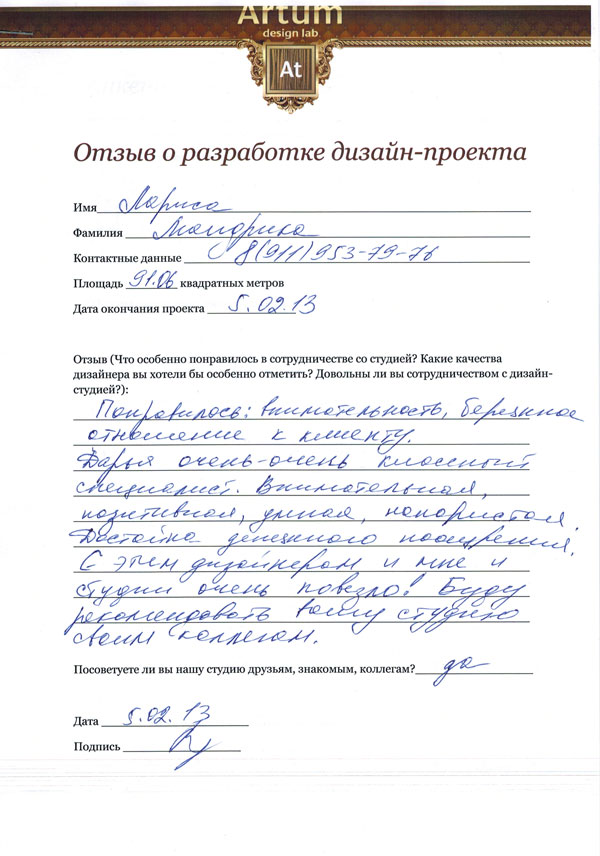 Artum
design lab
At
Отзыв о разработке дизайн-проекта
Имя Лариса
Фамилия Мандрика
Контактные данные 8(911)953-79-76
Площадь 91.06 квадратных метров
Дата окончания проекта 5.02.13
Отзыв (Что особенно понравилось в сотрудничестве со студией? Какие качества
дизайнера вы хотели бы особенно отметить? Довольны ли вы сотрудничеством с дизайн-
студией?):
Понравилось: внимательность, бережное
отношение к клиенту.
Дарья очень-очень классный
специалист. Внимательная,
позитивная, умная, напористая.
Достойна денежного поощрения.
С этим дизайнером и мне и
студии очень повезло! Буду
рекомендовать вашу студию
своим коллегам.
Посоветуете ли вы нашу студию друзьям, знакомым, коллегам? да
Дата 5.02.13
Подпись